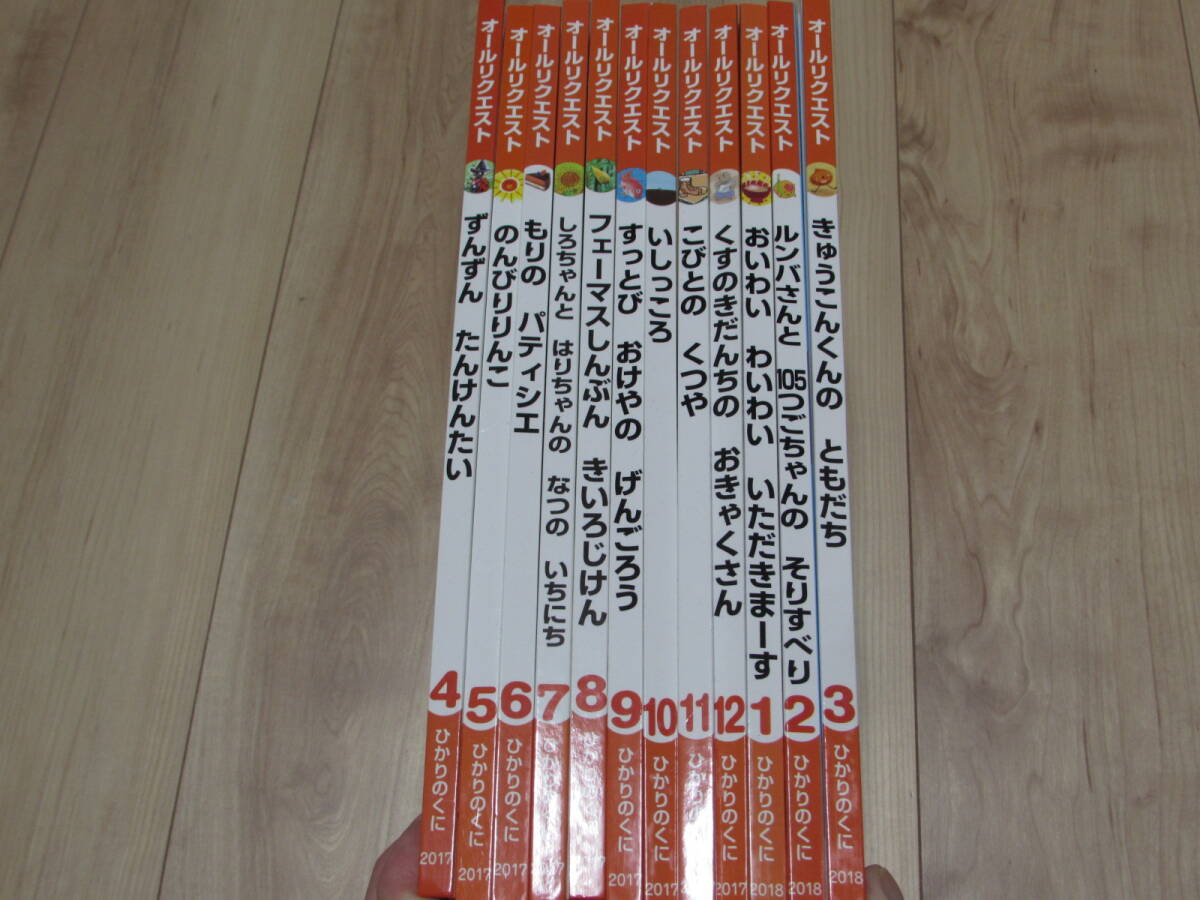 オールリクエスト
ずんずん たんけんたい
4
ひかりのくに
2017
オールリクエスト
のんびりりんこ
5
ひかりのくに
2017
オールリクエスト
もりの パティシエ
6
ひかりのくに
2017
オールリクエスト
しろちゃんと はりちゃんの なつの いちにち
7
ひかりのくに
2017
オールリクエスト
フェーマスしんぶん きいろじけん
8
オールリクエスト
すっとび おけやの げんごろう
9
ひかりのくに
2017
オールリクエスト
いしっころ
10
ひかりのくに
2017
オールリクエスト
こびとの くつや
11
オールリクエスト
くすのきだんちの おきゃくさん
12
ひかりのくに
2017
オールリクエスト
おいわい わいわい いただきまーす
1
ひかりのくに
2018
オールリクエスト
ルンバさんと 105つごちゃんの そりすべり
2
ひかりのくに
2018
オールリクエスト
きゅうこんくんの ともだち
3
ひかりのくに
2018